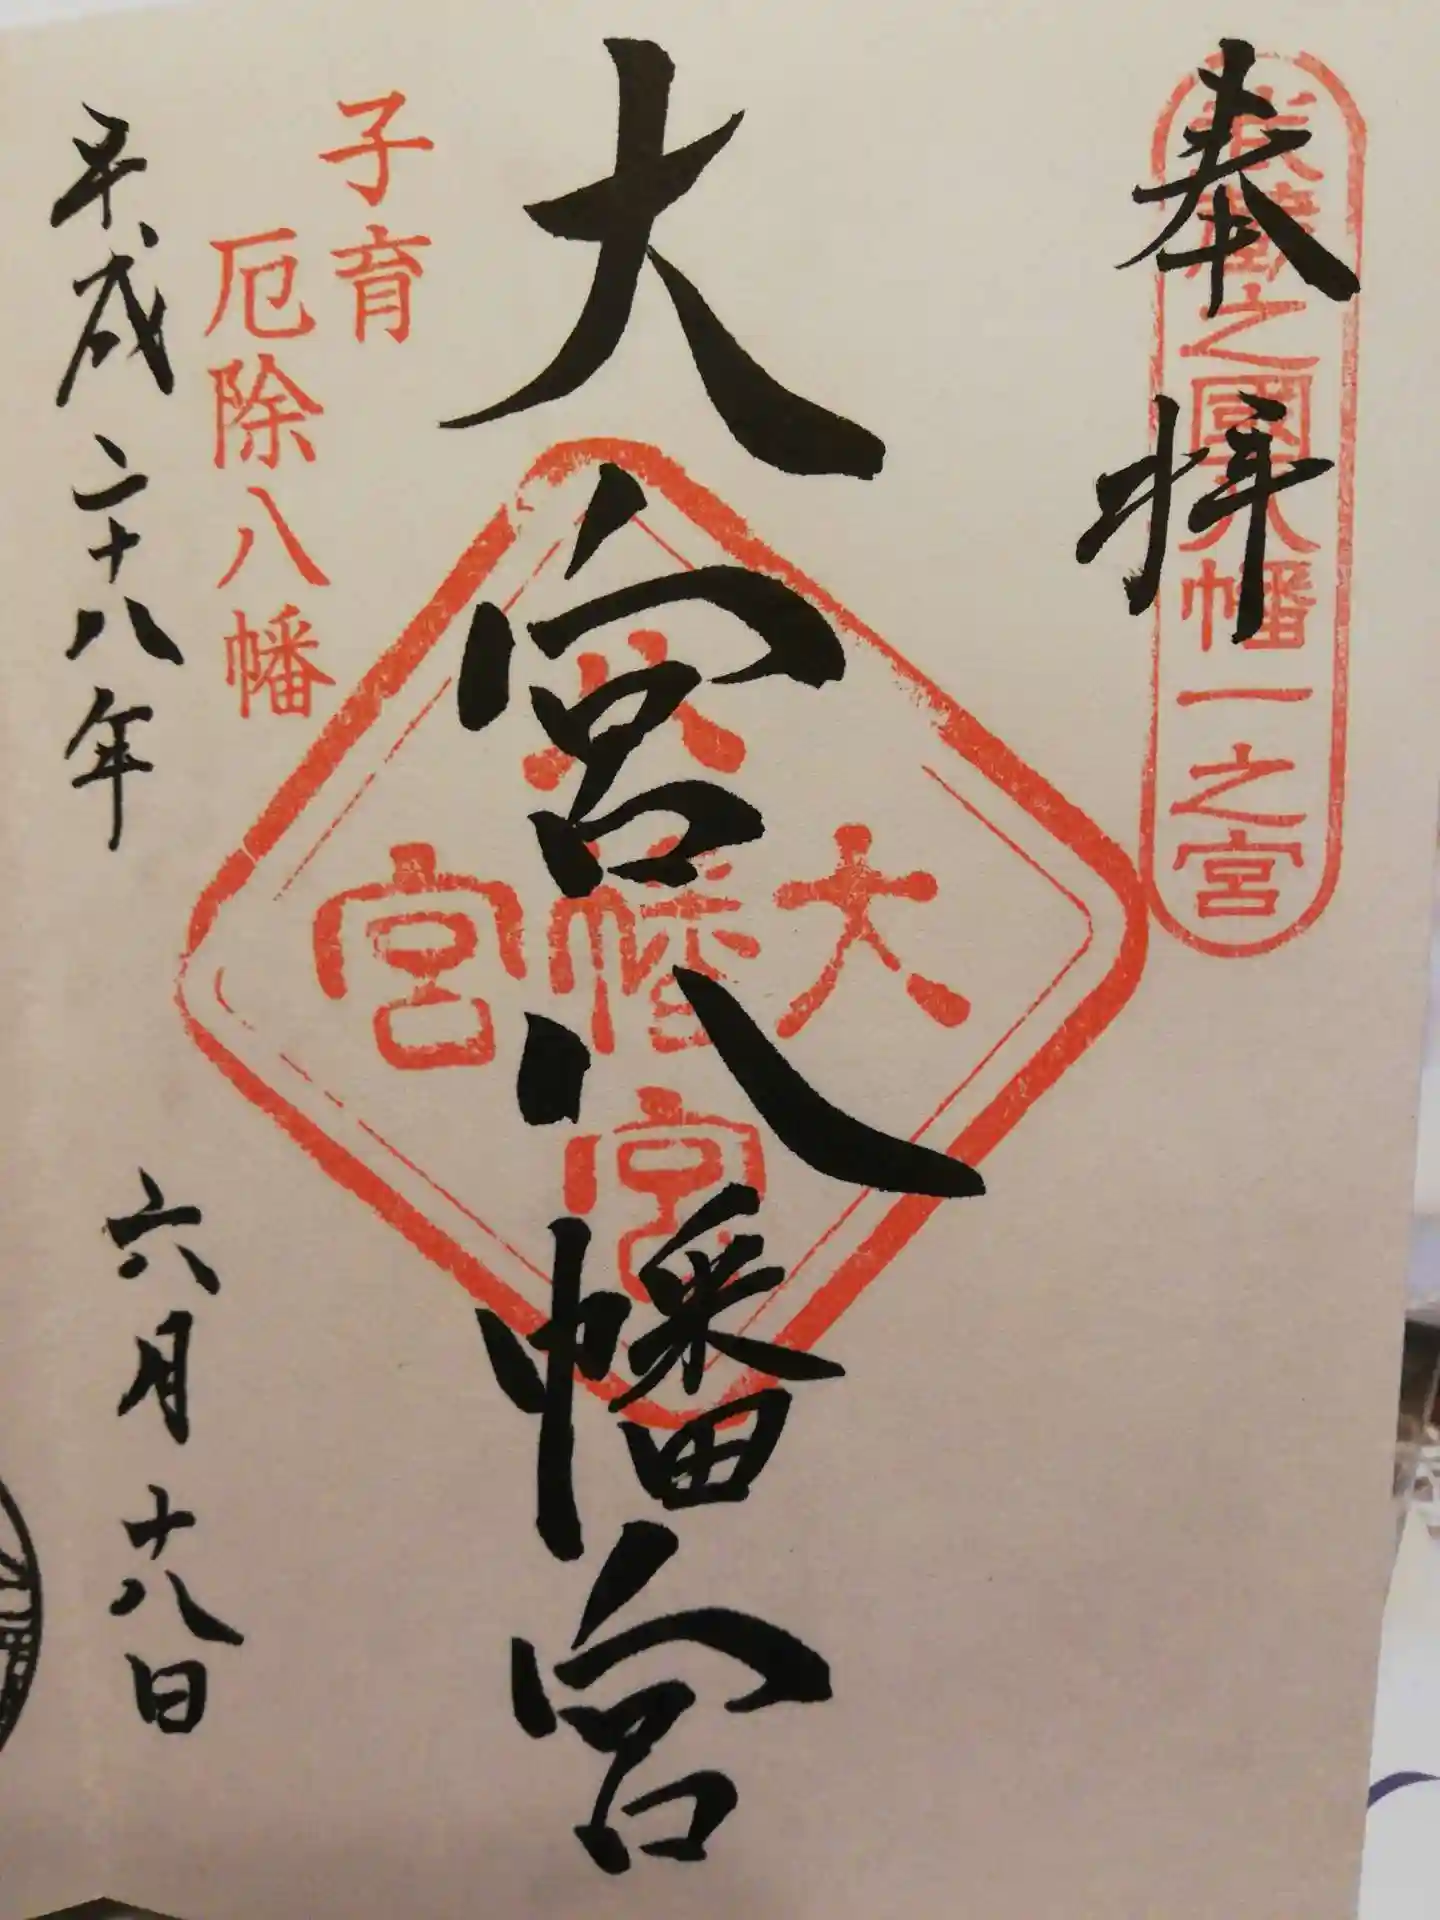 奉拝
武蔵之國八幡一之宮
大宮八幡宮
八幡宮
大宮
子育
厄除八幡
平成二十八年 六月十八日